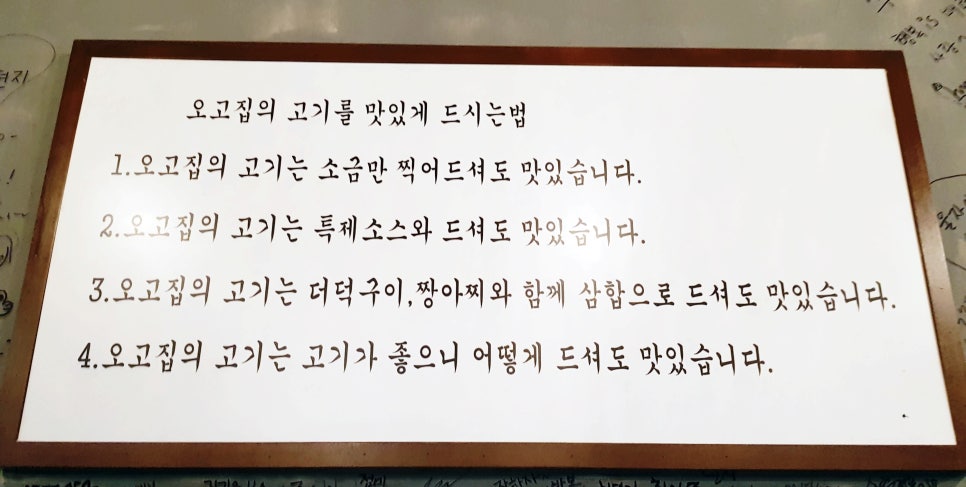 오고집의 고기를 맛있게 드시는법
1.오고집의 고기는 소금만 찍어드셔도 맛있습니다.
2.오고집의 고기는 특제소스와 드셔도 맛있습니다.
3.오고집의 고기는 더덕구이,짱아찌와 함께 삼합으로 드셔도 맛있습니다.
4.오고집의 고기는 고기가 좋으니 어떻게 드셔도 맛있습니다.